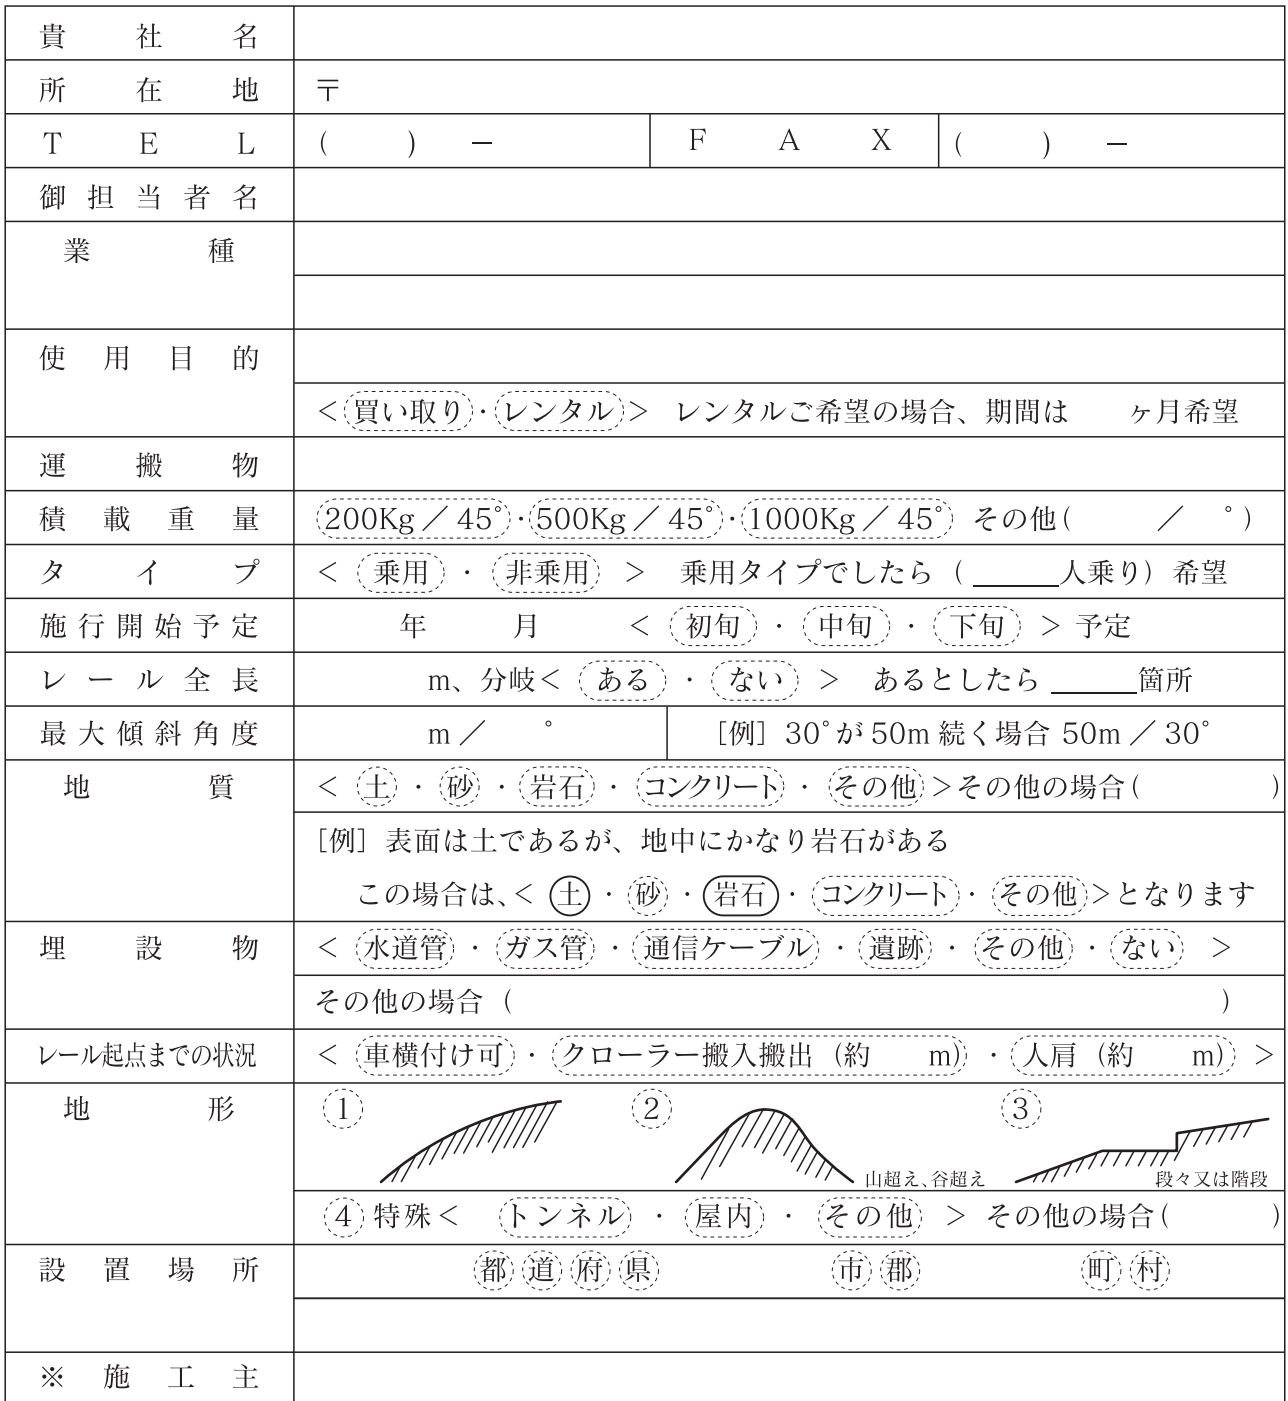 貴社名
所在地 〒
TEL ( ) － FAX ( ) －
御担当者名
業種
使用目的
＜買い取り・レンタル＞ レンタルご希望の場合、期間は ヶ月希望
運搬物
積載重量 200Kg／45°・500Kg／45°・1000Kg／45° その他( ／ °)
タイプ ＜ 乗用 ・ 非乗用 ＞ 乗用タイプでしたら ( ______人乗り) 希望
施行開始予定 年 月 ＜ 初旬 ・ 中旬 ・ 下旬 ＞ 予定
レール全長 m、分岐＜ ある ・ ない ＞ あるとしたら ______箇所
最大傾斜角度 m／ ° ［例］30°が50m続く場合 50m／30°
地質 ＜ 土 ・ 砂 ・ 岩石 ・ コンクリート ・ その他＞その他の場合( )
［例］表面は土であるが、地中にかなり岩石がある
この場合は、＜ 土 ・ 砂 ・ 岩石 ・ コンクリート ・ その他＞となります
埋設物 ＜ 水道管 ・ ガス管 ・ 通信ケーブル ・ 遺跡 ・ その他 ・ ない ＞
その他の場合 ( )
レール起点までの状況 ＜ 車横付け可 ・ クローラー搬入搬出 (約 m) ・ 人肩 (約 m) ＞
地形 ① ② ③
山超え、谷超え 段々又は階段
④ 特殊＜ トンネル ・ 屋内 ・ その他 ＞ その他の場合( )
設置場所 都 道 府 県 市 郡 町 村
※施工主